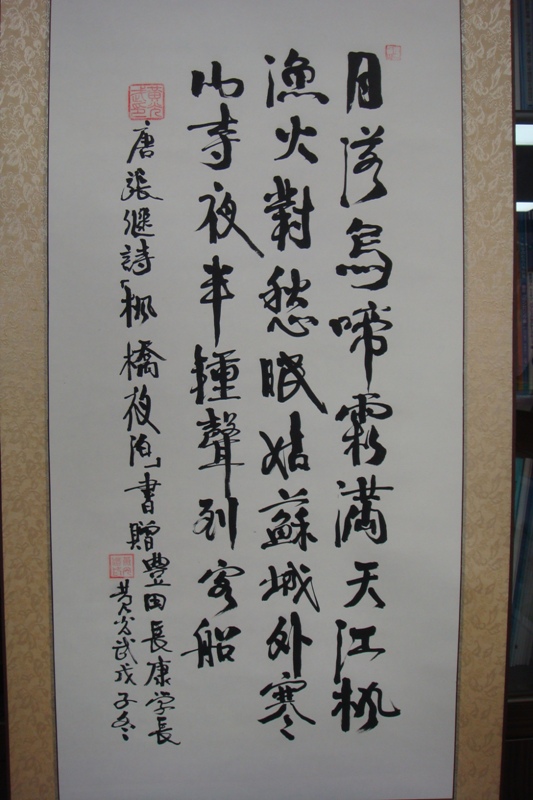 月落烏啼霜滿天江楓
漁火對愁眠姑蘇城外寒
山寺夜半鐘聲到客船
唐張繼詩「楓橋夜泊」書贈豐田長康学長
黄光武戊子冬